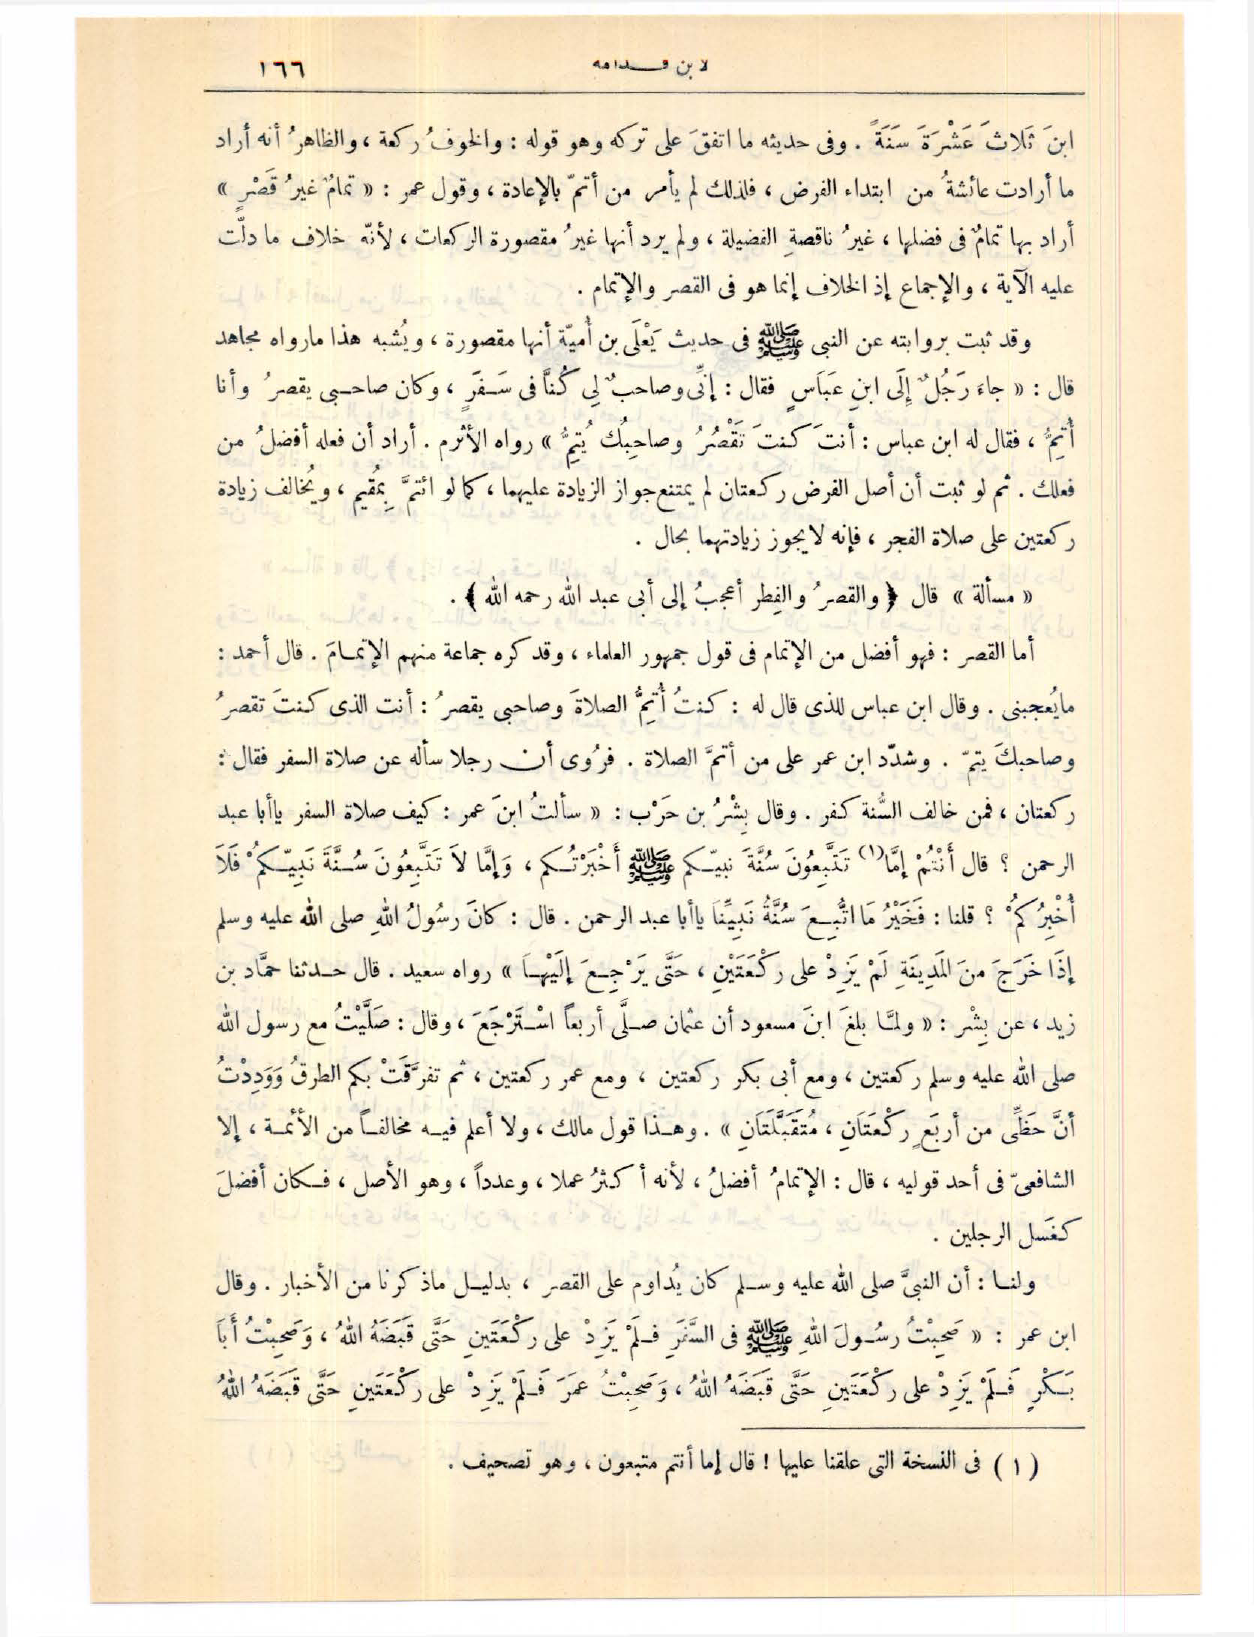 لابن قدامه ١٦٦
ابنَ ثَلاثَ عَشْرَةَ سَنَةً . وفى حديثه ما اتفقَ على تركه وهو قوله : والخوفُ ركعة ، والظاهرُ أنه أراد
ما أرادت عائشةُ من ابتداء الفرض ، فلذلك لم يأمر من أتمّ بالإعادة ، وقول عمر : « تمامٌ غيرُ قَصْرٍ »
أراد بها تمامٌ فى فضلها ، غيرُ ناقصةِ الفضيلة ، ولم يرد أنها غيرُ مقصورة الركعات ، لأنّه خلاف ما دلّت
عليه الآية ، والإجماع إذ الخلاف إنما هو فى القصر والإتمام .
وقد ثبت بروايته عن النبى ﷺ فى حديث يَعْلَى بن أُميّة أنها مقصورة ، ويُشبه هذا مارواه مجاهد
قال : « جاءَ رَجُلٌ إلَى ابنِ عَبَاسٍ فقال : إنِّى وصاحبٌ لِى كُنَّا فى سَفَرٍ ، وكان صاحبى يقصرُ وأنا
أُتِمُّ ، فقال له ابن عباس : أنتَ كنتَ تَقْصُرُ وصاحِبُك يُتِمُّ » رواه الأثرم . أراد أن فعله أفضلُ من
فعلك . ثم لو ثبت أن أصل الفرض ركعتان لم يمتنع جواز الزيادة عليهما ، كما لو ائتمَّ بِمُقيم ، ويُخالف زيادة
ركعتين على صلاة الفجر ، فإنه لايجوز زيادتهما بحال .
« مسألة » قال ﴿ والقصرُ والفِطر أعجبُ إلى أبى عبد الله رحمه الله ﴾ .
أما القصر : فهو أفضل من الإتمام فى قول جمهور العلماء ، وقد كره جماعة منهم الإتمامَ . قال أحمد :
مايُعجبنى . وقال ابن عباس للذى قال له : كنتُ أُتِمُّ الصلاةَ وصاحبى يقصرُ : أنت الذى كنتَ تقصرُ
وصاحبكَ يتمّ . وشدّد ابن عمر على من أتمَّ الصلاة . فرُوى أن رجلا سأله عن صلاة السفر فقال :
ركعتان ، فمن خالف السُّنة كفر . وقال بِشْرُ بن حَرْب : « سألتُ ابنَ عمر : كيف صلاة السفر ياأبا عبد
الرحمن ؟ قال أَنْتُمْ إمَّا(١) تَتَّبِعُونَ سُنَّةَ نبيّكم ﷺ أَخْبَرْتُكم ، وَإمَّا لاَ تَتَّبِعُونَ سُنَّةَ نَبِيّكمُ فَلاَ
أُخْبِرُكمُ ؟ قلنا : فَخَيْرُ مَا اتُّبِعَ سُنَّةُ نَبِيِّنَا ياأبا عبد الرحمن . قال : كانَ رسُولُ اللهِ صلى الله عليه وسلم
إذَا خَرَجَ منَ المَدِينَةِ لَمْ يَزِدْ على ركْعَتَيْنِ ، حَتَّى يَرْجِعَ إلَيْهَا » رواه سعيد . قال حدثنا حمَّاد بن
زيد ، عن بِشْر : « ولمَّا بلغَ ابنَ مسعود أن عثمان صلَّى أربعاً اسْتَرْجَعَ ، وقال : صَلَّيْتُ مع رسول الله
صلى الله عليه وسلم ركعتين ، ومع أبى بكر ركعتين ، ومع عمر ركعتين ، ثم تفرَّقَتْ بكم الطرقُ وَوَدِدْتُ
أنَّ حَظِّى من أربَعٍ ركْعَتَانِ ، مُتَقَبَّلَتَانِ » . وهذا قول مالك ، ولا أعلم فيه مخالفاً من الأئمة ، إلا
الشافعىّ فى أحد قوليه ، قال : الإتمامُ أفضلُ ، لأنه أكثرُ عملا ، وعدداً ، وهو الأصل ، فكان أفضلَ
كغَسل الرجلين .
ولنا : أن النبىَّ صلى الله عليه وسلم كان يُداوم على القصر ، بدليل ماذكرنا من الأخبار . وقال
ابن عمر : « صَحِبْتُ رسُولَ اللهِ ﷺ فى السَّفَرِ فَلَمْ يَزِدْ على ركْعَتَينِ حَتَّى قَبَضَهُ اللهُ ، وَصَحِبْتُ أَبَا
بَكْرٍ فَلَمْ يَزِدْ على ركْعَتَينِ حَتَّى قَبَضَهُ اللهُ ، وَصَحِبْتُ عمَرَ فَلَمْ يَزِدْ على ركْعَتَينِ حَتَّى قَبَضَهُ اللهُ
(١) فى النسخة التى علقنا عليها ! قال إما أنتم متبعون ، وهو تصحيف .